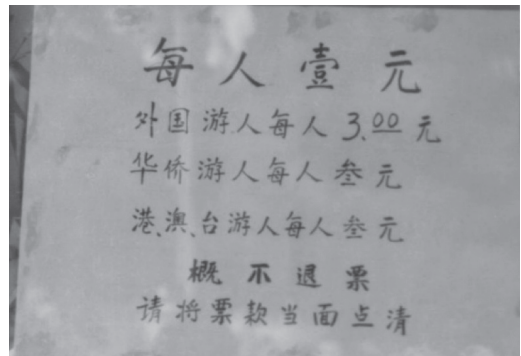 每人壹元
外国游人每人3.00元
华侨游人每人叁元
港、澳、台游人每人叁元
概不退票
请将票款当面点清